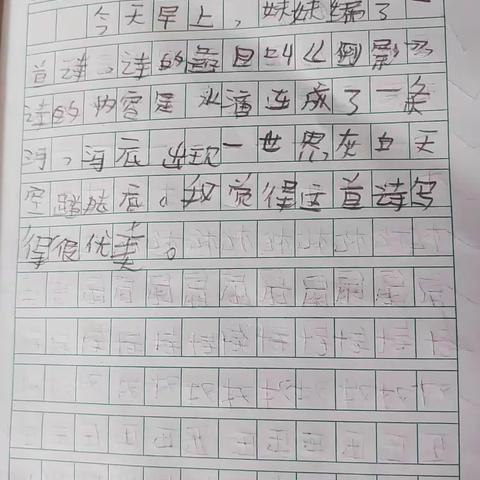 今天早上，妹妹编了一
首诗。诗的题目叫《倒影》
诗的内容是 水洼连成了一条
河，河底出现一世界灰白天
空踏脚底。我觉得这首诗写
得很优美。